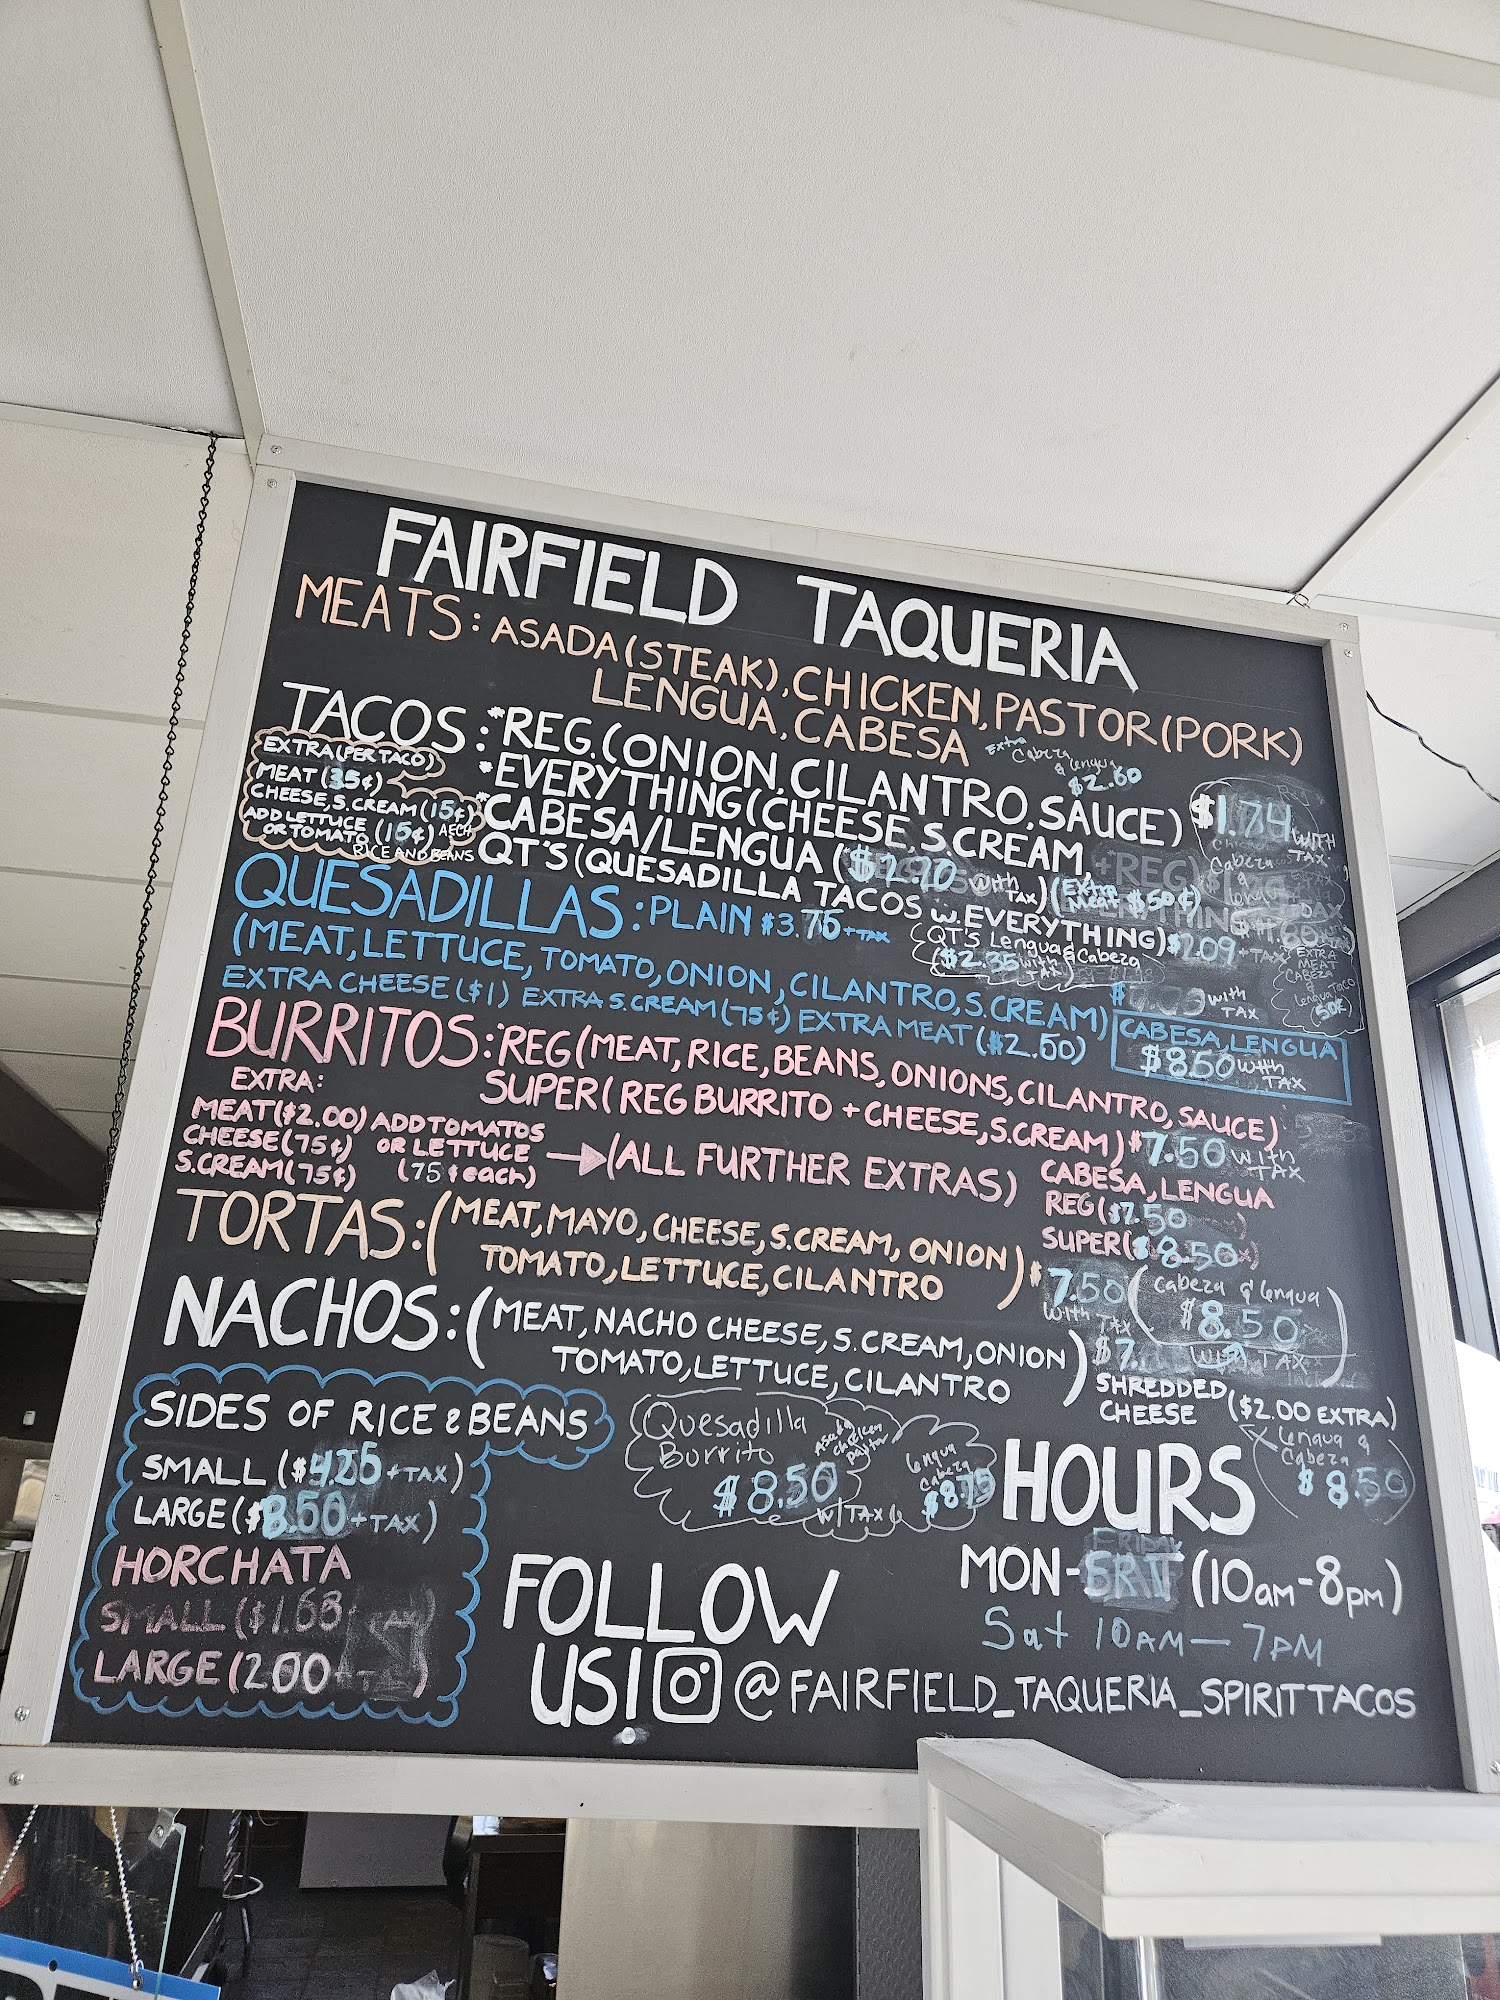 FAIRFIELD TAQUERIA
MEATS: ASADA(STEAK), CHICKEN, PASTOR(PORK)
LENGUA, CABESA
TACOS: *REG. (ONION, CILANTRO, SAUCE) $1.74 WITH TAX
Extra Cabeza & Lengua $2.60
*EVERYTHING(CHEESE, S.CREAM, +REG)
*CABESA/LENGUA ($2.20 WITH TAX) (Extra Meat $50¢)
QT'S (QUESADILLA TACOS W. EVERYTHING) $2.09 +TAX
(QT'S Lengua & Cabeza
($2.35 with TAX)
EXTRA MEAT CABEZA & Lengua Taco (50¢)
EXTRA(PER TACO)
MEAT (35¢)
CHEESE, S.CREAM (15¢)
ADD LETTUCE
OR TOMATO, (15¢) AECH
RICE AND BEANS
QUESADILLAS: PLAIN $3.75 +TAX
(MEAT, LETTUCE, TOMATO, ONION, CILANTRO, S.CREAM) $ WITH TAX
EXTRA CHEESE ($1) EXTRA S.CREAM (75¢) EXTRA MEAT ($2.50)
CABESA, LENGUA
$8.50 WITH TAX
BURRITOS: *REG(MEAT, RICE, BEANS, ONIONS, CILANTRO, SAUCE)
SUPER(REG BURRITO + CHEESE, S.CREAM) $7.50 WITH TAX
EXTRA:
MEAT($2.00) ADD TOMATOS
CHEESE(75¢) OR LETTUCE
S.CREAM(75¢) (75¢ each) → (ALL FURTHER EXTRAS)
CABESA, LENGUA
REG($7.50
SUPER($8.50
TORTAS: (MEAT, MAYO, CHEESE, S.CREAM, ONION
TOMATO, LETTUCE, CILANTRO) $7.50 WITH TAX
(Cabeza & Lengua
$8.50
WITH TAX)
NACHOS: (MEAT, NACHO CHEESE, S.CREAM, ONION
TOMATO, LETTUCE, CILANTRO) $7.
SHREDDED CHEESE ($2.00 EXTRA)
Lengua & Cabeza $8.50
SIDES OF RICE & BEANS
SMALL ($4.25 +TAX)
LARGE ($8.50 +TAX)
HORCHATA
SMALL ($1.68 + TAX)
LARGE (2.00 + TAX)
Quesadilla
Burrito
Asada chicken pastor
$8.50
W/TAX
Lengua Cabeza
$8.75
HOURS
MON-FRI (10AM-8PM)
Sat 10AM-7PM
FOLLOW
US! @FAIRFIELD_TAQUERIA_SPIRITTACOS